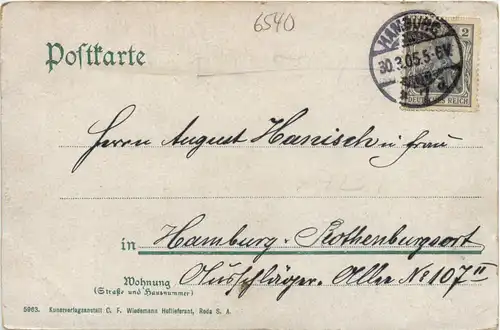 6540
Postkarte
HAMBURG
30.3.05.5-6V.
2
DEUTSCHES REICH
Herrn August Hanisch u frau
in Hamburg-Rothenburgsort
Wohnung Ausschläger-Allee No 107 II
(Straße und Hausnummer)
5963. Kunstverlagsanstalt C. F. Wiedemann Hoflieferant, Roda S. A.